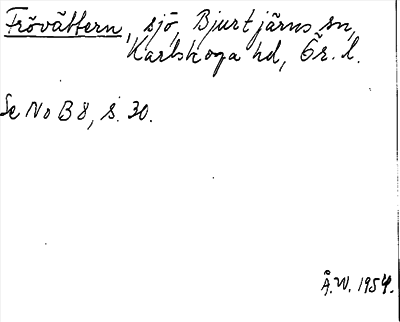 Frövättern, sjö, Bjurtjärns sn,
Karlskoga hd, Ör. l.
Se No B 8, s. 30.
Å.W. 1954.